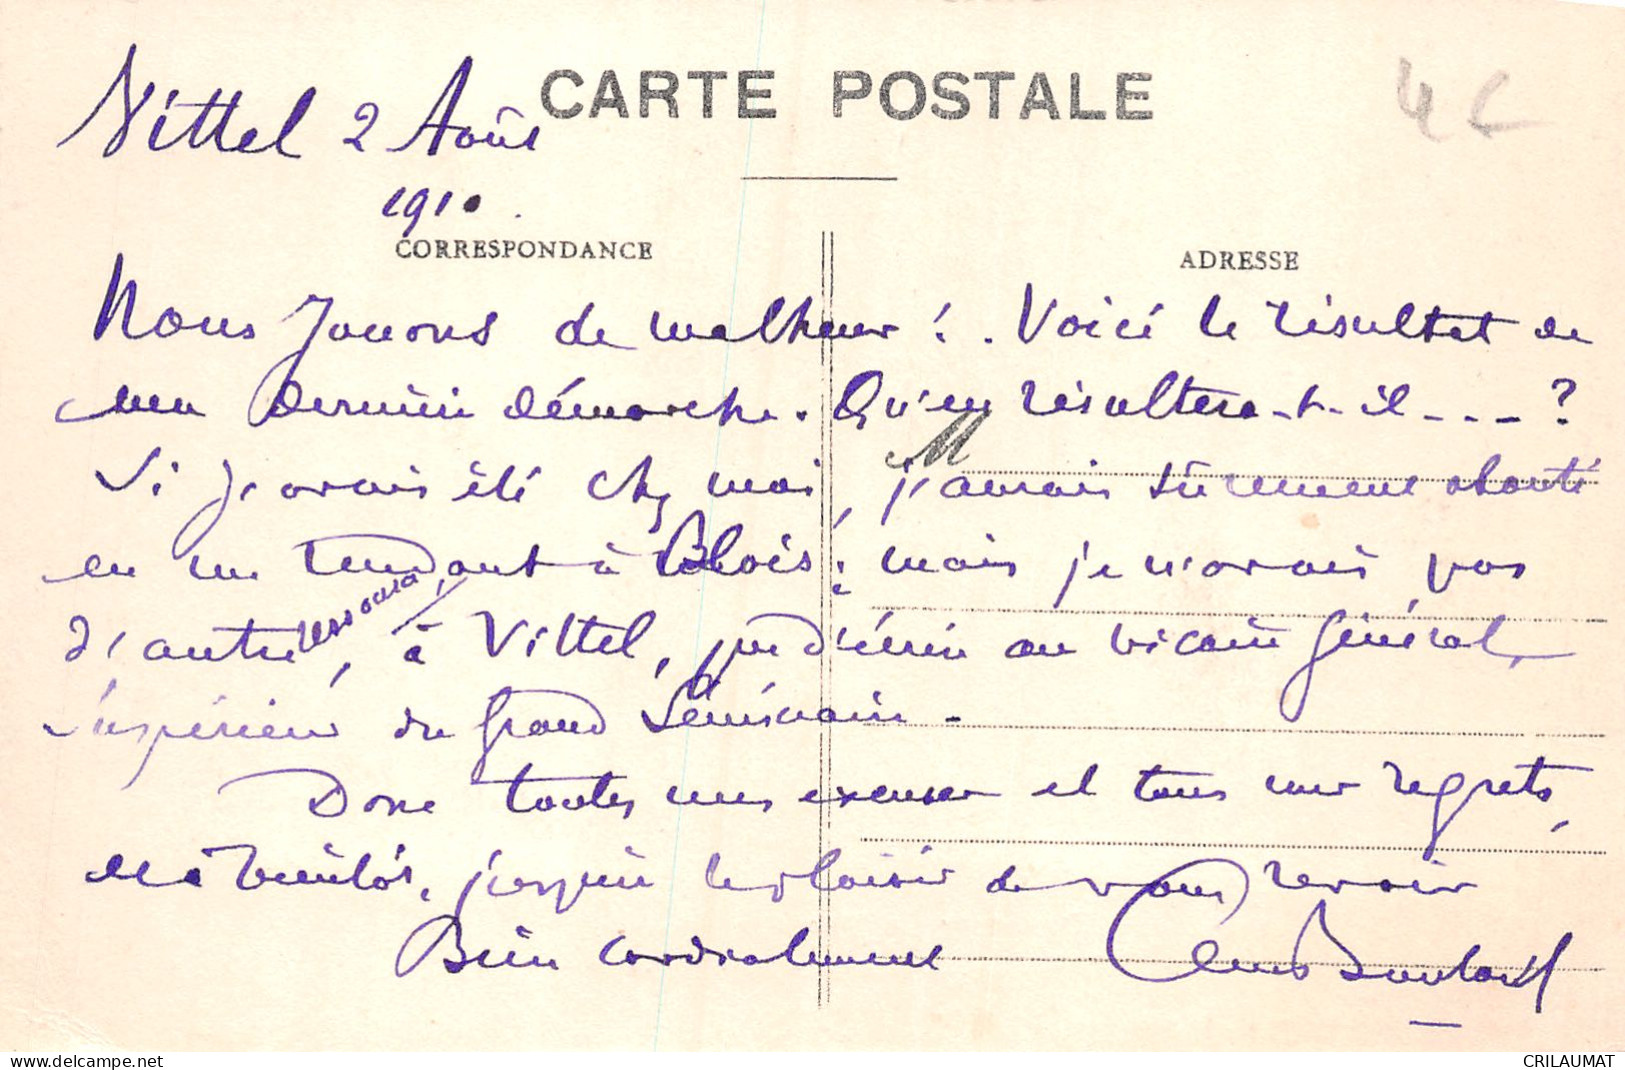 CARTE POSTALE
4 €
Vittel 2 Août
1910.
CORRESPONDANCE
ADRESSE
Nous jouons de malheur ! . Voici le résultat de
ma dernière démarche. Qu'en résultera-t-il --- ?
M
Si j'avais été chez moi, j'aurais sûrement abouti
en me rendant à Blois ; mais je n'avais pas
d'autre ressource, à Vittel, que d'écrire au vicaire général,
supérieur du grand Séminaire -
Donc toutes mes excuses et tous mes regrets,
et à bientôt, j'espère le plaisir de vous revoir
Bien cordialement
CRILAUMAT
www.delcampe.net